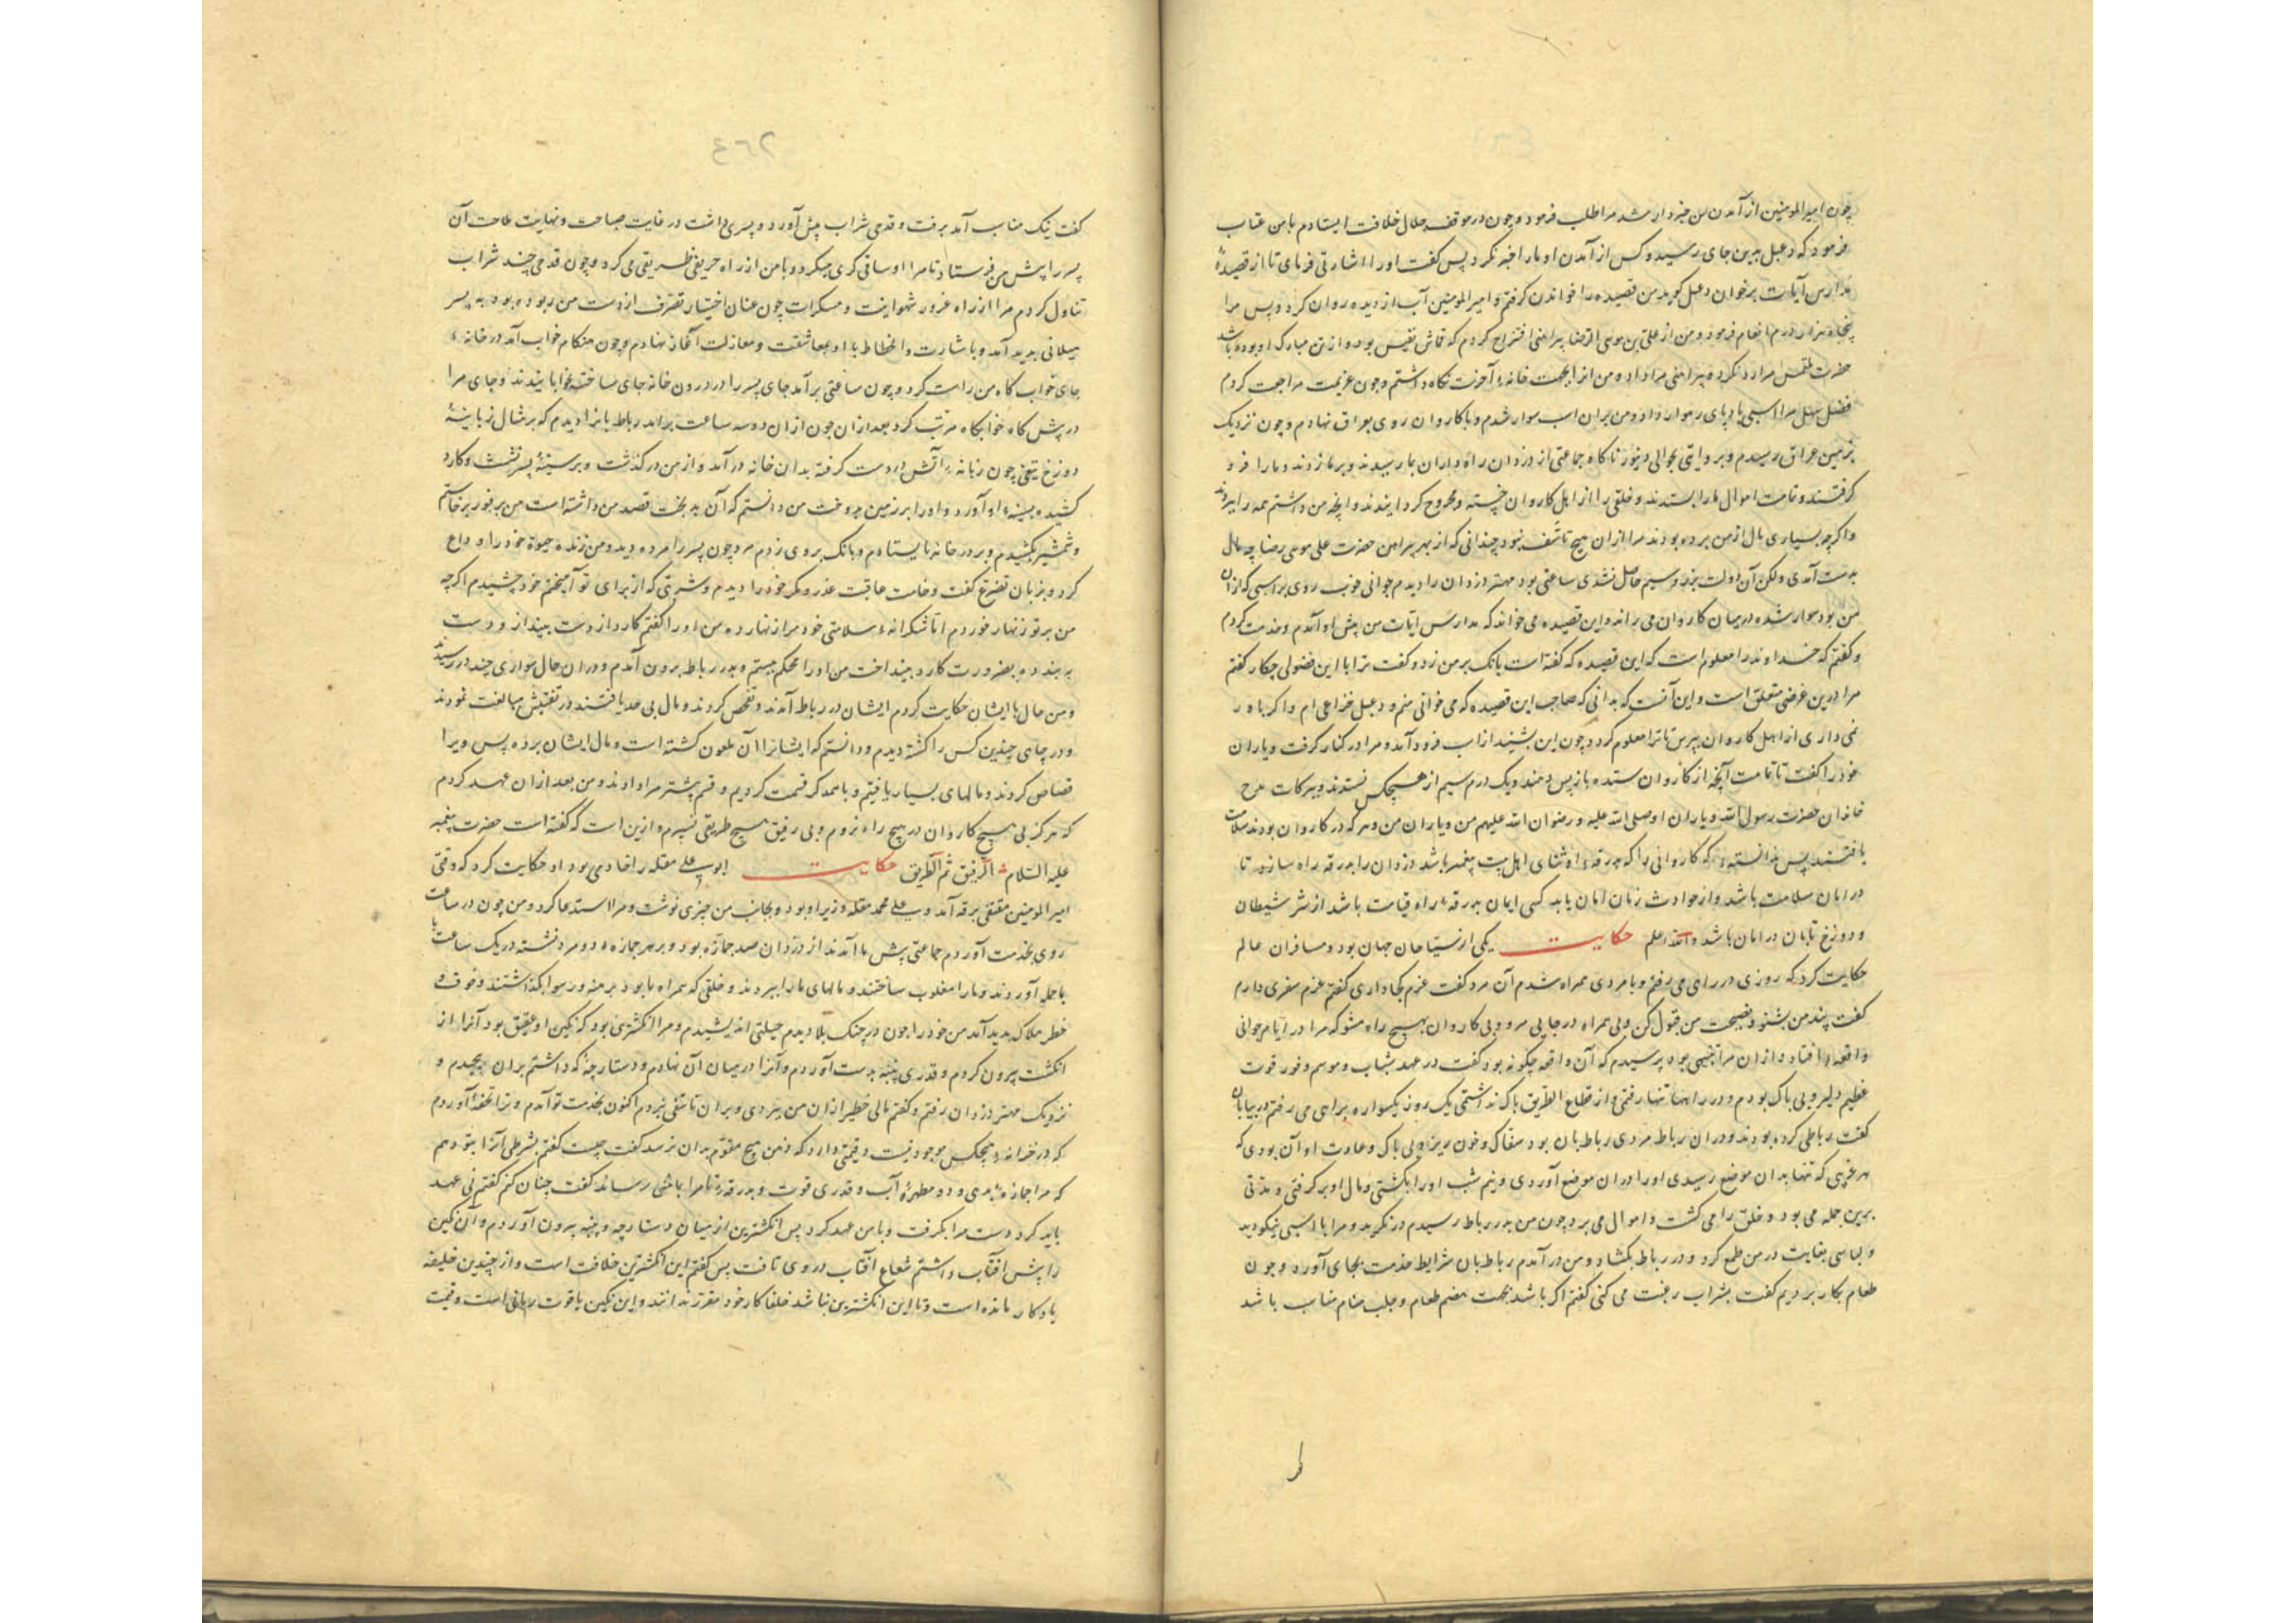 چون امیرالمومنین از آمدن من خبردار شد مرا طلب فرمود و چون در موقف جلال خلافت ایستادم با من عتاب
فرمود که دعبل بدین جای رسید و کس از آمدن او ما را خبر نکرد پس گفت او را اشارتی فرمای تا از قصیدهٔ
مدارس آیات برخوان دعبل گوید من قصیده را خواندن گرفتم و امیرالمومنین آب از دیده روان کرد و پس مرا
پنجاه هزار درم انعام فرمود و من از علی بن موسی الرضا پیراهنی اقتراح کردم که قماش نفیس بود و از تن مبارک او بوده باشد
حضرت ملتمس مرا رد نکرد و پیراهنی مرا داد و من انرا بجهت خانهٔ آخرت نگاه داشتم و چون عزیمت مراجعت کردم
فضل سهل مرا اسبی بادپای رهوار داد و من بران اسب سوار شدم و با کاروان روی بعراق نهادم و چون نزدیک
زمین عراق رسیدم و بروایتی بحوالی دینور ناگاه جماعتی از دزدان راه داران بما رسیدند و بر ما زدند و ما را فرو
گرفتند و تمامت اموال ما را بستدند و خلقی را از اهل کاروان خسته و مجروح گردانیدند و انچه من داشتم همه را ببردند
و اگرچه بسیاری مال از من برده بودند مرا ازان هیچ تأسف نبود چندانی که از بهر پیراهن حضرت علی موسی رضا چه مال
بدست آمدی ولکن آن دولت بزر و سیم حاصل نشدی ساعتی بود مهتر دزدان را دیدم جوانی خوب روی بر اسبی که ازان
من بود سوار شده در میان کاروان می راند و این قصیده می خواند که مدارس ایات من پیش او آمدم و خدمت کردم
و گفتم که خداوند را معلوم است که این قصیده که گفته است بانک بر من زد و گفت ترا با این فضولی چکار گفتم
مرا درین غرضی متعلق است و این آنست که بدانی که صاحب این قصیده که می خوانی منم و دعبل خزاعی ام و اگر باور
نمی داری از اهل کاروان بپرس تا ترا معلوم گردد چون این بشنید از اسب فرود آمد و مرا در کنار گرفت و یاران
خود را گفت تا تمامت آنچه از کاروان ستده باز پس دهند و یک درم سیم از هیچکس نستدند و ببرکات مدح
خاندان حضرت رسول الله و یاران او صلی الله علیه و رضوان الله علیهم من و یاران من و هر که در کاروان بودند سلامت
یافتند پس بدانستم که کاروانی را که بدرقهٔ او ثنای اهل بیت پیغمبر باشد دزدان را بدرقه راه سازد تا
در امان سلامت باشد و از حوادث زمان امان یابد کسی ایمان بدرقهٔ راه قیامت باشد از شر شیطان
و دوزخ تابان در امان باشد والله اعلم حکایت یکی از سیّاحان جهان بود و مسافران عالم
حکایت کرد که روزی در راهی می رفتم و با مردی همراه شدم آن مرد گفت عزم کجا داری گفتم عزم سفری دارم
گفت پند من بشنو و نصیحت من قبول کن و بی همراه در جایی مرو و بی کاروان بهیچ راه مشو که مرا در ایام جوانی
واقعهٔ افتاد و ازان مرا تنبیهی بود پرسیدم که آن واقعه چگونه بود گفت در عهد شباب و موسم وفور قوت
عظیم دلیر و بی باک بودم و در راهها تنها رفتمی و از قطاع الطریق باک نداشتمی یک روز یکسواره براهی می رفتم در بیابان
گفت رباطی کرده بودند و دران رباط مردی رباط بان بود سفاک و خون ریز و بی باک و عادت او آن بودی که
هر غریبی که تنها بدان موضع رسیدی او را دران موضع آوردی و نیم شب او را بکشتی و مال او برگرفتی و مدتی
برین جمله می بود و خلق را می کشت و اموال می برد چون من بدر رباط رسیدم در نگرید و مرا با اسبی نیکو دید
و لباسی بغایت در من طمع کرد و در رباط بکشاد و من در آمدم رباط بان شرایط خدمت بجای آورد و چون
طعام بکار بردیم گفت بشراب رغبت می کنی گفتم اگر باشد بجهت هضم طعام و جلب منام مناسب باشد
گفت نیک مناسب آمد برفت و قدری شراب پیش آورد و پسری داشت در غایت صباحت و نهایت ملاحت آن
پسر را پیش من فرستاد تا مرا او ساقی گری میکرد و با من از راه حریفی ظریفی می کرد و چون قدحی چند شراب
تناول کردم مرا از راه غرور شهوانیت و مسکرات چون عنان اختیار تصرف از دست من ربوده بود به پسر
میلانی پدید آمد و با شارت و انحطاط با او بمعاشقت و مغازلت آغاز نهادم و چون هنگام خواب آمد در خانهٔ
جای خواب گاه من راست کرد و چون ساعتی برآمد جای پسر را در درون خانه جای ساخته بخوابانیدند و جای مرا
در پیش گاه خوابگاه مرتب کرد بعد ازان چون ازان دو سه ساعت برآمد رباط بانرا دیدم که بر مثال زبانیهٔ
دوزخ تیغی چون زبانهٔ آتش در دست گرفته بدان خانه درآمد و از من در گذشت و بر سینهٔ پسر نشست و کارد
کشیده بسینهٔ او آورد و او را بر زمین بدوخت من دانستم که آن بدبخت قصد من داشته است من بر فور برخاستم
و شمشیر بکشیدم و بر در خانه بایستادم و بانک بر وی زدم مرد چون پسر را مرده دید و من زنده حیوة خود را وداع
کرد و بزبان تضرع گفت وخامت عاقبت غدر و مکر خود را دیدم و شربتی که از برای تو آمیختم خود چشیدم اگرچه
من بر تو زنهار خوردم اما شکرانهٔ سلامتی خود مرا زنهار ده من او را گفتم کارد از دست بینداز و دست
به بند ده بضرورت کارد بینداخت من او را محکم ببستم و بدر رباط برون آمدم و دران حال سواری چند در رسیدند
و من حال با ایشان حکایت کردم ایشان در رباط آمدند و تفحص کردند و مال بی حد یافتند در تفتیش مبالغت نمودند
و در چای چندین کس را کشته دیدم و دانستم که ایشانرا آن ملعون کشته است و مال ایشان برده پس ویرا
قصاص کردند و مالهای بسیار یافتیم و با همدگر قسمت کردیم و قسم بیشتر مرا دادند و من بعد ازان عهد کردم
که هرگز بی هیچ کاروان در هیچ راه نروم و بی رفیق هیچ طریقی نسپرم و ازین است که گفته است حضرت پیغمبر
علیه السلام الرفیق ثم الطریق حکایت ابوعلی مقله را خادمی بود او حکایت کرد که وقتی
امیرالمومنین متقی برقه آمد و بوعلی محمد مقله وزیر او بود و بجانب من چیزی نوشت و مرا استدعا کرد و من چون در ساعت
روی بخدمت آوردم جماعتی پیش ما آمدند از دزدان صد جمازه بود و بر هر جمازه دو مرد نشسته در یک ساعت با
با حمله آوردند و ما را مغلوب ساختند و مالهای ما را ببردند و خلقی که همراه ما بود برهنه و رسوا بگذاشتند و خوف
خطر هلاک پدید آمد من خود را چون در چنک بلا دیدم حیلتی اندیشیدم و مرا انگشتری بود که نگین او عقیق بود آنرا از
انگشت بیرون کردم و قدری پنبه بدست آوردم و آنرا در میان آن نهادم و دستارچهٔ که داشتم بران پیچیدم و
نزدیک مهتر دزدان رفتم و گفتم مالی خطیر ازان من ببردی و بران تأسفی نبردم اکنون بخدمت تو آمدم و ترا تحفهٔ آوردم
که در خزانهٔ هیچکس موجود نیست و قیمتی دارد که ذهن هیچ مقوّم بدان نرسد گفت چیست گفتم بشرطی آنرا بتو دهم
که مرا جمازهٔ دهی و دو مطهرهٔ آب و قدری قوت و بدرقهٔ تا مرا بمامنی رساند گفت چنان کنم گفتم نی عهد
باید کرد دست مرا بگرفت و با من عهد کرد پس انگشترین از میان دستارچه و پنبه بیرون آوردم و آن نگین
را پیش آفتاب داشتم شعاع آفتاب در وی تافت پس گفتم این انگشترین خلافت است و از چندین خلیفه
یادگار مانده است و تا این انگشترین نباشد خلفا کار خود مقرر ندانند و این نگین یاقوت رمانی است و قیمت